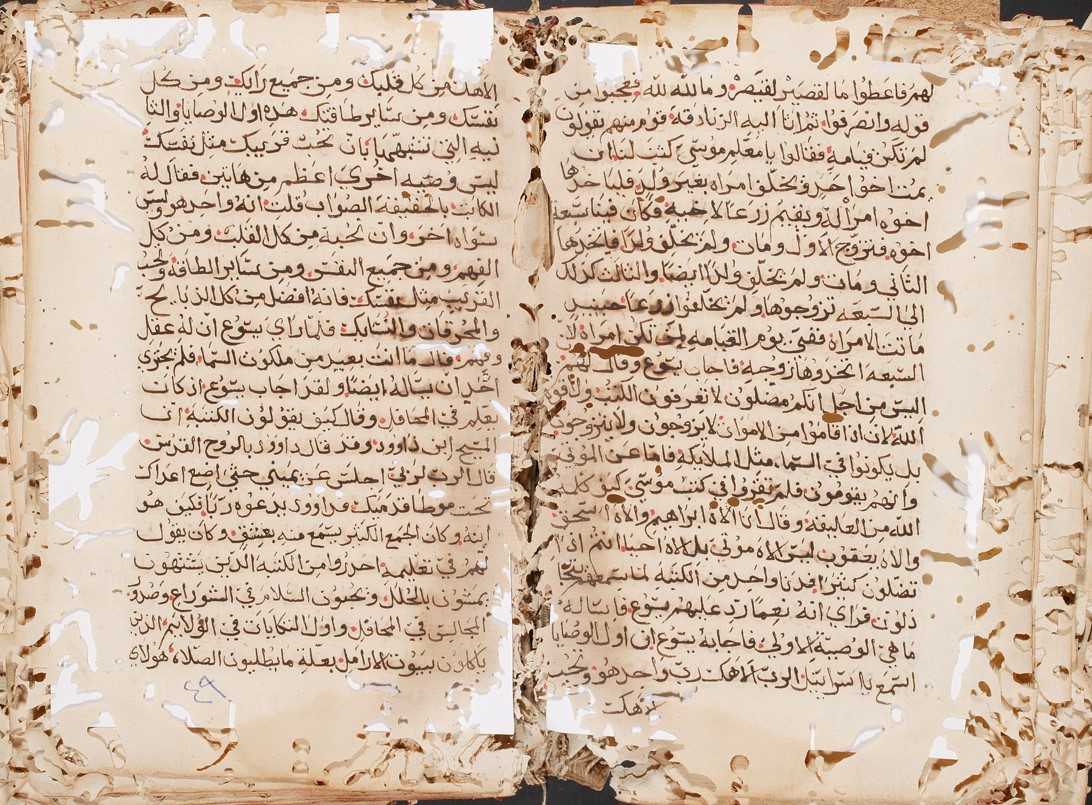 لهم فاعطوا ما لقصير لقيصر وما لله لله فعجبوا من
قوله وانصرفوا ثم اتا اليه الزنادقة قوم منهم يقولون
لم تكن قيامه فقالوا يامعلم موسي كتب لنا ان
يمت اخو احد ويخلق امراه بغير ولد فلياخدها
اخوه امراله ويقيم زرعا لاخيه فكان فينا سبعة
اخوه فتزوج الاول ومات ولم يخلق ولدا فاخدها
الثاني ومات ولم يخلق ولدا ايضا والثالث كذلك
الي السبعه تزوجوها ولم يخلفوا زرعا حينيد
ماتت الامراه ففي يوم القيامه لمن تكن امراه لان
السبعه اتخدوها زوجه فاجاب يسوع وقال لهم
اليس من اجل انكم مضلون لا تعرفون الكتب ولا قوة
الله لان ادا قاموا من الاموات لا يزوجون ولا يتزوجون
بل يكونوا في السما مثل الملايكه فاما عن الموتي
وانهم يقومون فلم تقروا في كتب موسي كيف كلمه
الله من العاليقه وقال انا الاه ابراهيم والاه اسحق
والاه يعقوب ليس الاه موتي بل الاه احيا انتم اذا
تضلون كثيرا فدنا واحد من الكتبه لما سمعهم يتجا
دلون فراي انه نعما رد عليهم يسوع فاساله
ما هي الوصية الاولي فاجابه يسوع ان اول الوصايا
اسمع يا اسراييل الرب الاهك رب واحد هو وتحب
الاهك
الاهك من كل قلبك ومن جميع رايك ومن كل
نفسك ومن ساير طاقتك هده اول الوصايا والثا
نيه التي تشبهها بان تحب قريبك مثل نفسك
ليس وصيه اخري اعظم من هاتين فقال له
الكاتب بالحقيقه الصواب قلت انه واحد هو وليس
سواه اخر وان تحبه من كل القلب ومن كل
الفهم ومن جميع النفس ومن ساير الطاقه وتحب
القريب مثل نفسك فانه افضل من كل الدبايح
والمحرقات والنسايك فلما راي يسوع ان له عقل
وفهم قال ما انت بعيد من ملكوت السما فلم يجوي
احد ان يساله ايضا ولقد اجاب يسوع اد كان
يعلم في المحافل وقال كيف يقولون الكتبه ان
المسيح ابن داوود وقد قال داوود بالروح القدس
قال الرب لربي اجلس عن يميني حتي اضع اعداك
تحت موطا قدميك فداوود يدعوه ربا فكيف هو
ابنه وكان الجمع الكثير يسمع منه بعشق وكان يقول
لهم في تعليمه احدروا من الكتبه الدين يشتهون
يمشون بالحلل ويحبون السلام في الشوراع وصدو
المجالس في المحافل واول التكايات في الولايم الدين
ياكلون بيوت الارامل بعلة ما يطلبون الصلاه هولاي
٤٩